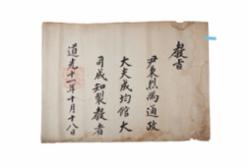 教旨
尹秉烈為通政
大夫成均館大
司成知製教者
道光十一年十月十八日